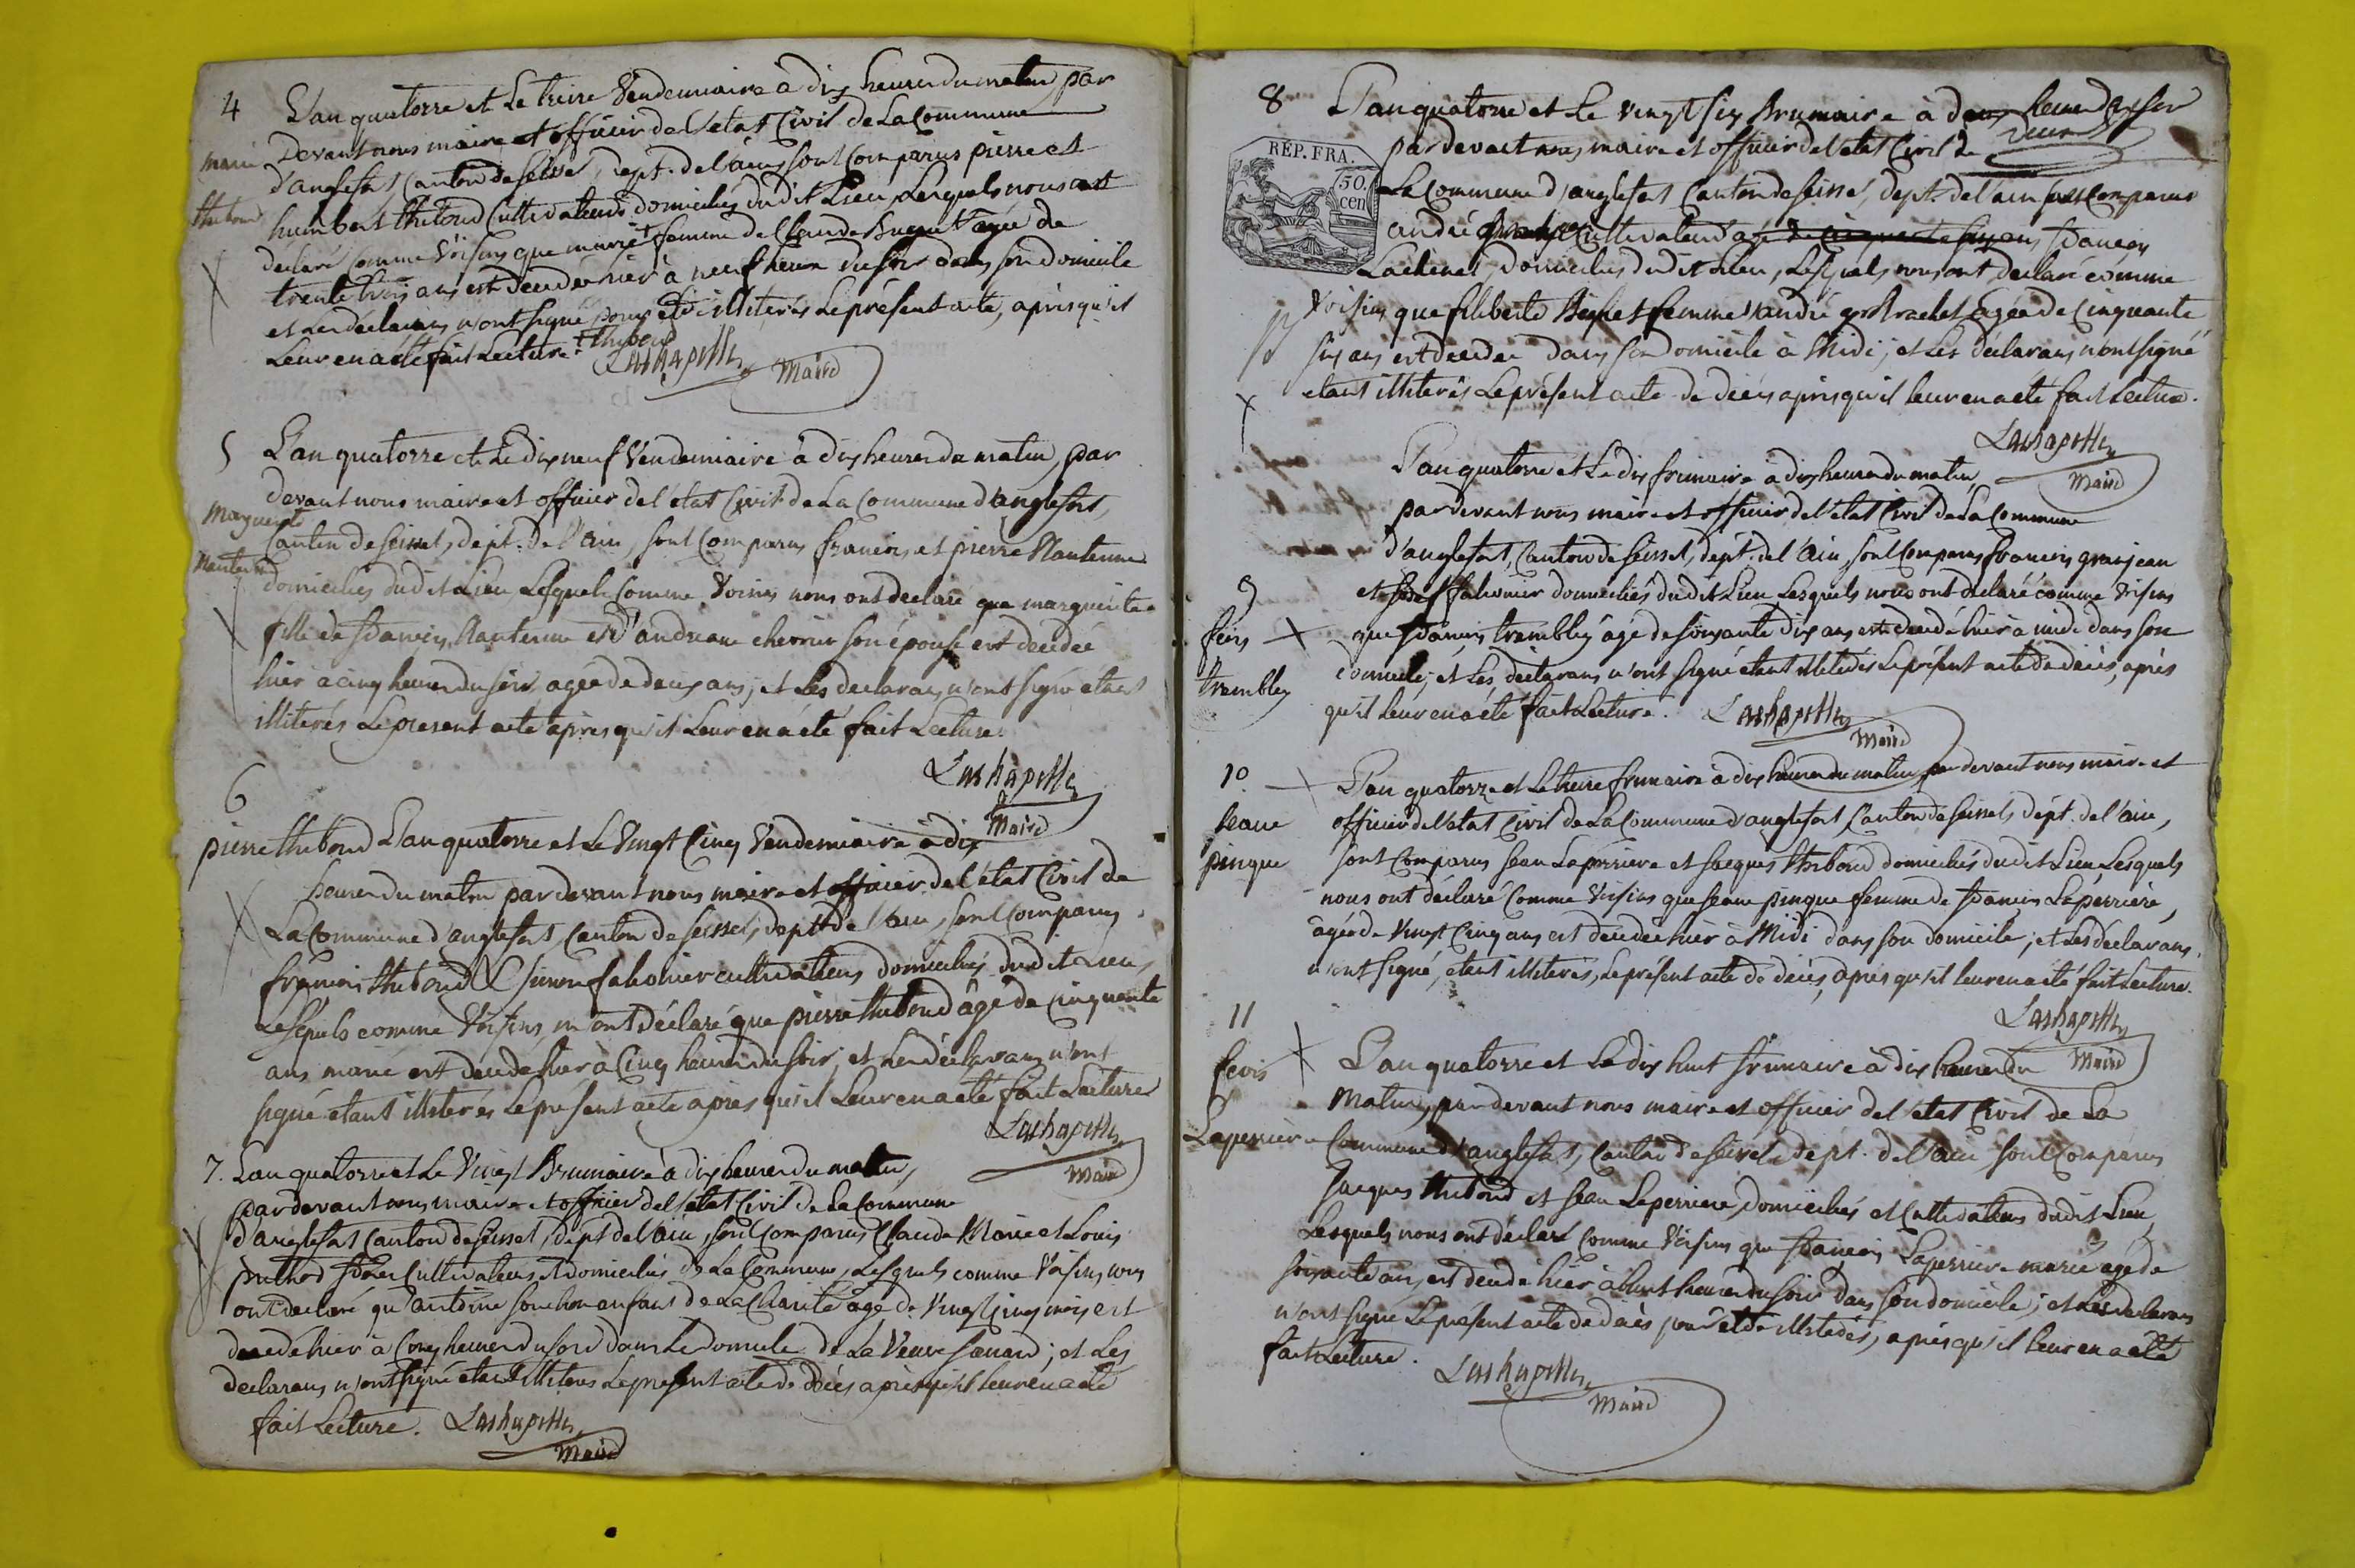 4
L'an quatorze et Le treize Vendemiaire à dix heures du matin par
Devant nous maire et officier de l'etat Civil de La Commune
marie
d'anglefort Canton de seissel, dept. de l'ain, sont Comparus pierre et
thiboud
humbert thiboud Cultivateurs domiciliés dudit Lieu Lesquels nous ont
declaré comme Voisins que marie + femme de Claude agée de
trente trois ans est decedée hier à neuf heures du soir dans son domicile
et Les déclarans n'ont signé pour être illiterés Le présent acte, après qu'il
Leur en a été fait Lecture. + thiboud
Lachapelle
Maire
5
L'an quatorze et Le dix neuf Vendemiaire à dix heures du matin, par
devant nous maire et officier de l'état Civil de La Commune d'anglefort,
Marguerite
Canton de seissel, dept. de l'ain, sont Comparus francois et pierre Nanterme
Nanterme
domiciliés dudit Lieu Lesquels comme Voisins nous ont declaré que marguerite
fille de francois Nanterme et d'andreane cherrier son épouse est decedée
hier à cinq heures du soir, agée de deux ans; et Les declarans n'ont signé étant
illiterés Le present acte après qu'il Leur en a été fait Lecture.
Lachapelle
Maire
6
pierre thiboud L'an quatorze et Le Vingt Cinq Vendemiaire à dix
heures du matin par devant nous maire et officier de l'état Civil de
La Commune d'anglefort, Canton de seissel, dept. de l'ain, sont Comparus
francois thiboud & simon falconier cultivateurs domiciliés dudit Lieu,
Lesquels comme Voisins, m'ont déclaré que pierre thiboud âgé de Cinquante
ans marié est decedé hier à Cinq heures du soir, et Les déclarans n'ont
signé etant illiterés Le présent acte après qu'il Leur en a été fait Lecture
Lachapelle
Maire
7. L'an quatorze et Le Vingt Brumaire à dix heures du matin,
par devant nous maire et officier de l'etat Civil de La Commune
d'anglefort Canton de seissel, dept. de l'ain, sont Comparus Claude Marie et Louis
prethod freres Cultivateurs et domiciliés de La Commune, Lesquels comme Voisins nous
ont declaré qu'antoine enfant de La Charité agé de Vingt Cinq mois est
decedé hier à Cinq heures du soir dans Le domicile de La Veuve ; et Les
declarans n'ont signé etant illiterés Le present acte de décès après qu'il leur en a été
fait Lecture. Lachapelle
Maire
8
L'an quatorze et Le Vingt six Brumaire à deux heures du soir
par devant nous maire et officier de l'etat Civil de
RÉP. FRA.
50.
cen
La Commune d'anglefort Canton de seissel, dept. de l'ain sont Comparus
andré Cultivateur agé de cinquante six ans francois
Lachenal, domiciliés dudit Lieu, Lesquels nous ont declaré comme
Voisins que filiberte femme d'andré agée de Cinquante
six ans est decedée dans son domicile à Midi; et Les déclarans n'ont signé
etant illiterés Le présent acte de décès après qu'il leur en a été fait Lecture.
Lachapelle
Maire
L'an quatorze et Le dix frimaire à dix heures du matin,
par devant nous maire et officier de l'etat Civil de La Commune
d'anglefort, Canton de seissel, dept. de l'ain, sont Comparus francois granjean
9
et falconier domiciliés dudit Lieu Lesquels nous ont déclaré comme Voisins
fcois
que francois trambley âgé de soixante dix ans est decedé hier à midi dans son
trambley
domicile; et Les déclarans n'ont signé étant illiterés Le présent acte de décès, après
qu'il leur en a été fait Lecture. Lachapelle
Maire
10.
L'an quatorze et Le treize frimaire à dix heures du matin par devant nous maire et
Jeane
officier de l'etat Civil de La Commune d'anglefort, Canton de seissel, dept. de l'ain,
pinque
sont Comparus Jean Laperriere et Jacques thiboud domiciliés dudit Lieu Lesquels
nous ont déclaré Comme Voisins que Jeane pinque femme de francois Laperriere,
âgée de Vingt Cinq ans est decedée hier à Midi dans son domicile; et Les déclarans
n'ont signé, etant illiterés, Le présent acte de décès, après qu'il leur en a été fait Lecture.
Lachapelle
Maire
11
fcois
L'an quatorze et Le dix huit frimaire à dix heures du
Matin, par devant nous maire et officier de l'etat Civil de La
Laperriere
Commune d'anglefort, Canton de seissel, dept. de l'ain, sont Comparus
Jacques thiboud et Jean Laperriere, domiciliés et Cultivateurs dudit Lieu,
Lesquels nous ont déclaré Comme Voisins que francois Laperriere marié agé de
soixante ans est decedé hier à huit heures du soir dans son domicile; et Les declarans
n'ont signé Le présent acte de décès pour être illiterés, après qu'il leur en a été
fait Lecture. Lachapelle
Maire